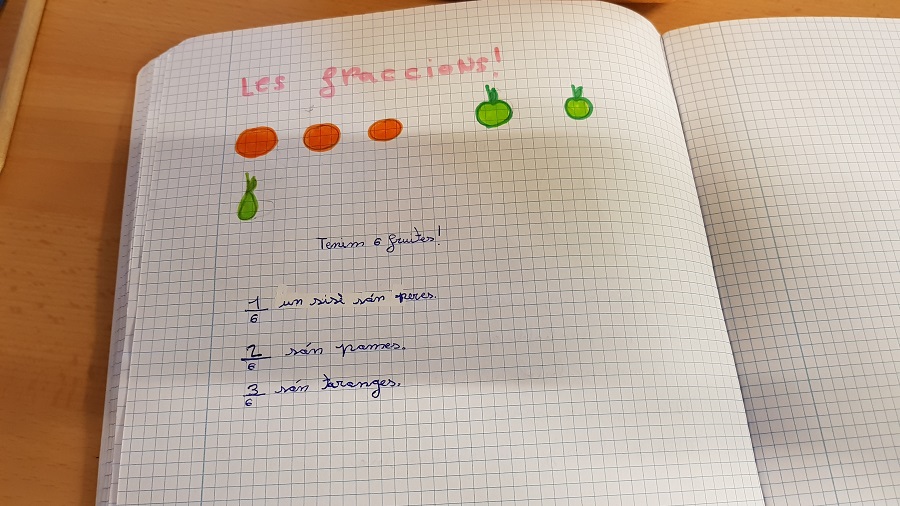 Les fraccions!
Tenim 6 fruites!
1/6 un sisè són peres.
2/6 són pomes.
3/6 són taronges.